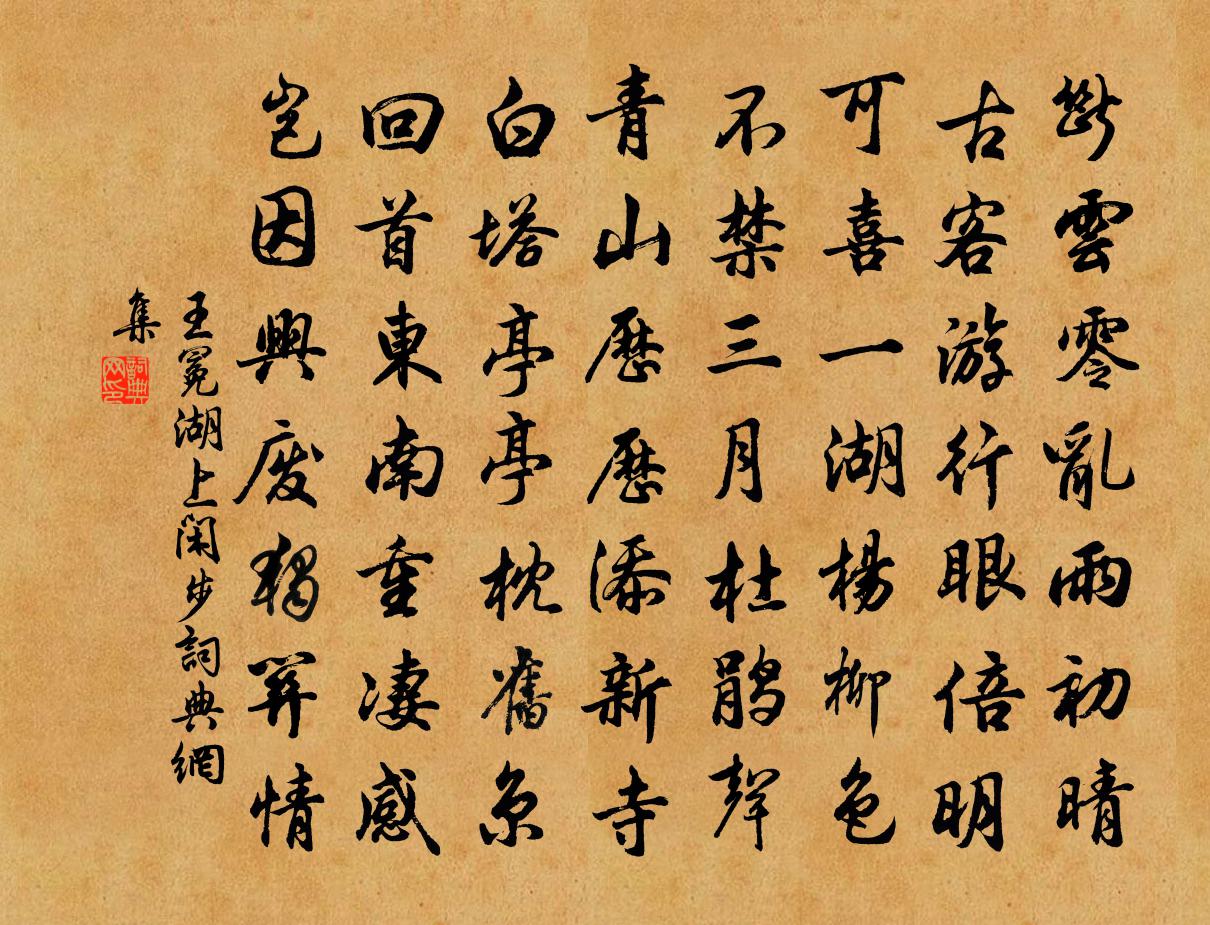 斷雲零亂雨初晴
古客游行眼倍明
可喜一湖楊柳色
不禁三月杜鵑聲
青山歷歷添新寺
白塔亭亭枕舊京
回首東南重凄感
豈因興廢獨關情
王冕湖上閑步詞典網
集
詞典网印